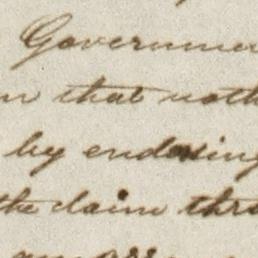 Governme
that noth
by endorsing
the claim thro